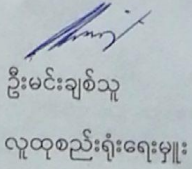 ဦးမင်းချစ်သူ
လူထုစည်းရုံးရေးမှူး